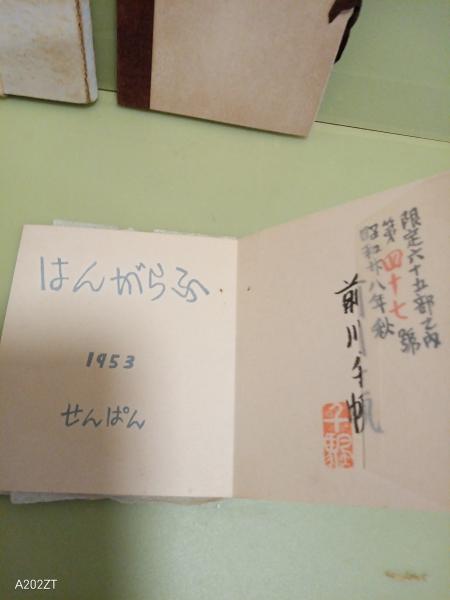 はんがらふ
1953
せんぱん
限定六十五部之内
第四十七號
昭和廿八年秋
前川千帆
A202ZT